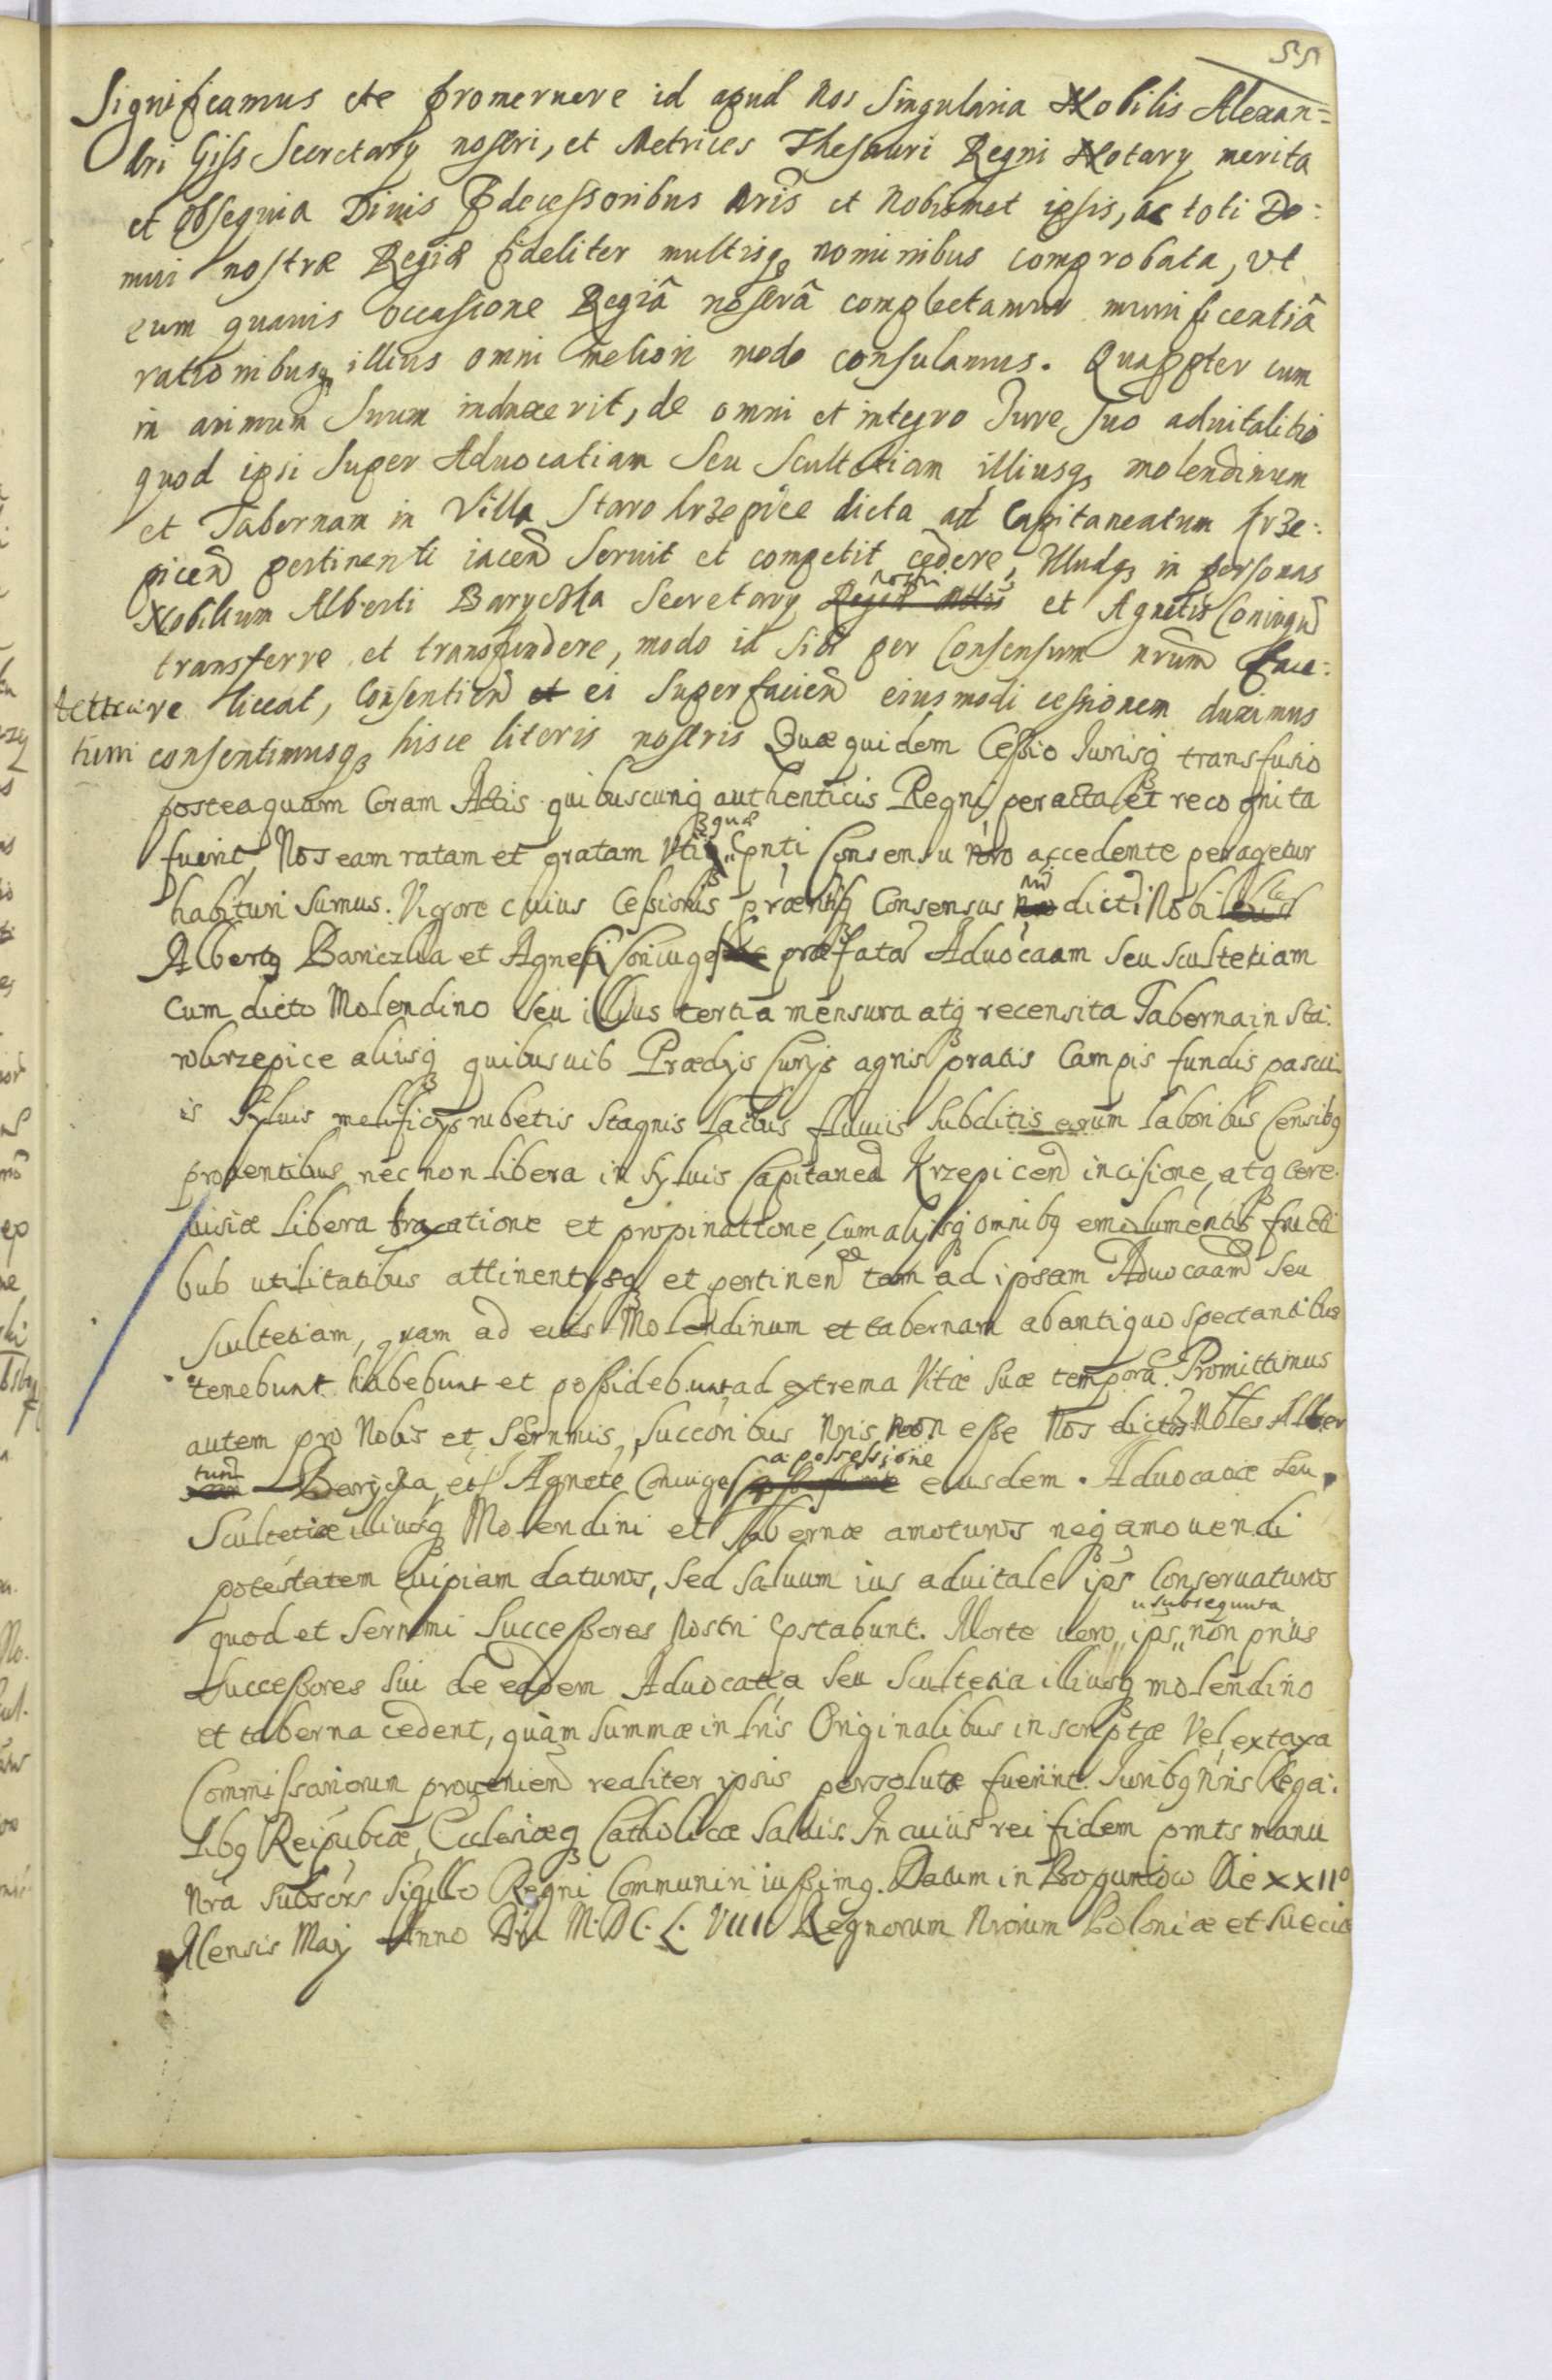 55
Significamus etc promeruere id apud nos Singularia Nobilis Alexan=
dri Giss Secretary nostri, et Metrices Thesauri Regni Notary merita
et obsequia Divis Pdecessoribus nris et Nobismet ipsis, ac toti Do:
mui nostræ Regiæ fideliter multisq nominibus comprobata, ut
eum quavis occasione Regiâ nostrâ complectamur munificentiâ
rationibusq illius omni meliori modo consulamus. Quappter cum
in animum Suum induxerit, de omni et integro Jure Suo aduitalitio
quod ipsi Super Aduocatiam Seu Scultetiam illiusq molendinum
et Tabernam in Villa Staro krzepice dicta ad Capitaneatum krze:
picen pertinenti iacen Seruit et competit cedere, Illudq in personas
Nobilium Alberti Baryczka Secretary nostri et Agnetis Coniugu
transferre et transfundere, modo id Sibi per Consensum nrum face:
re liceat, Consentien et ei Super facien eiusmodi cessionem duximus
tum consentimusq hisce literis nostris Quæ quidem Cessio Iurisq transfusio
posteaquam Coram Actis quibuscunq authenticis Regni peracta et recognita
fuerit, Nos eam ratam et gratam Vti quæ pnti Consensu nro accedente peragetur
habituri sumus. Vigore cuius Cessionis præntisq Consensus nri dicti Nobiles
Albertq Bariczka et Agnes Coniuges præfatã Aduocaam seu scultetiam
cum dicto Molendino seu illius tertia mensura atq recensita Taberna in Sta:
rokrzepice aliisq quibusuis Prædys Curijs agris pratis Campis fundis pascui
is syluis melificys rubetis Stagnis lacubus fluuiis subditis eorum laboribus Censibq
prouentibus nec non libera in syluis Capitanea Krzepicen incisione, atq Cere.
uisiæ libera braxatione et propinatione, cum alijsq omnibq emolumentis fructi
bus utilitatibus attinentysq et pertinen tam ad ipsam Aduocaam Seu
Scultetiam, quam ad eius Molendinum et tabernam ab antiquo spectantibus
tenebunt habebunt et possidebunt, ad extrema Vitæ suæ tempora. Promittimus
autem pro Nobis et Sernmis Succoribus Nris non esse Nos dictos Nbles Alber
tum Baryczka et Agnete Coniuges a possessione eiusdem Aduocatiæ seu
Scultetiæ illiusq Molendini et Tabernæ amoturos neq amouendi
potestatem Cuipiam daturos, sed saluum ius aduitale ips Conseruaturos
quod et Sernmi Successores Nostri pstabunt. Morte uero ips usubsequuta non prius
Successores sui de eadem Aduocatia seu Scultetia illiusq molendino
et taberna cedent, quàm summæ in Lris Originalibus inscriptæ Vel ex taxa
Commissariorum prouenien realiter ipsis persolutæ fuerint. Juribq Nris Rega:
libq Reipubcæ, Ecclesiæq Catholicæ saluis. In cuius rei fidem pntts manu
Nra subscrs Sigillo Regni Communiri iussimq. Datum in Die XXIIº
Mensis Maij Anno Dni M.DC.L.VIII Regnorum Nrorum Poloniæ et Sueciæ